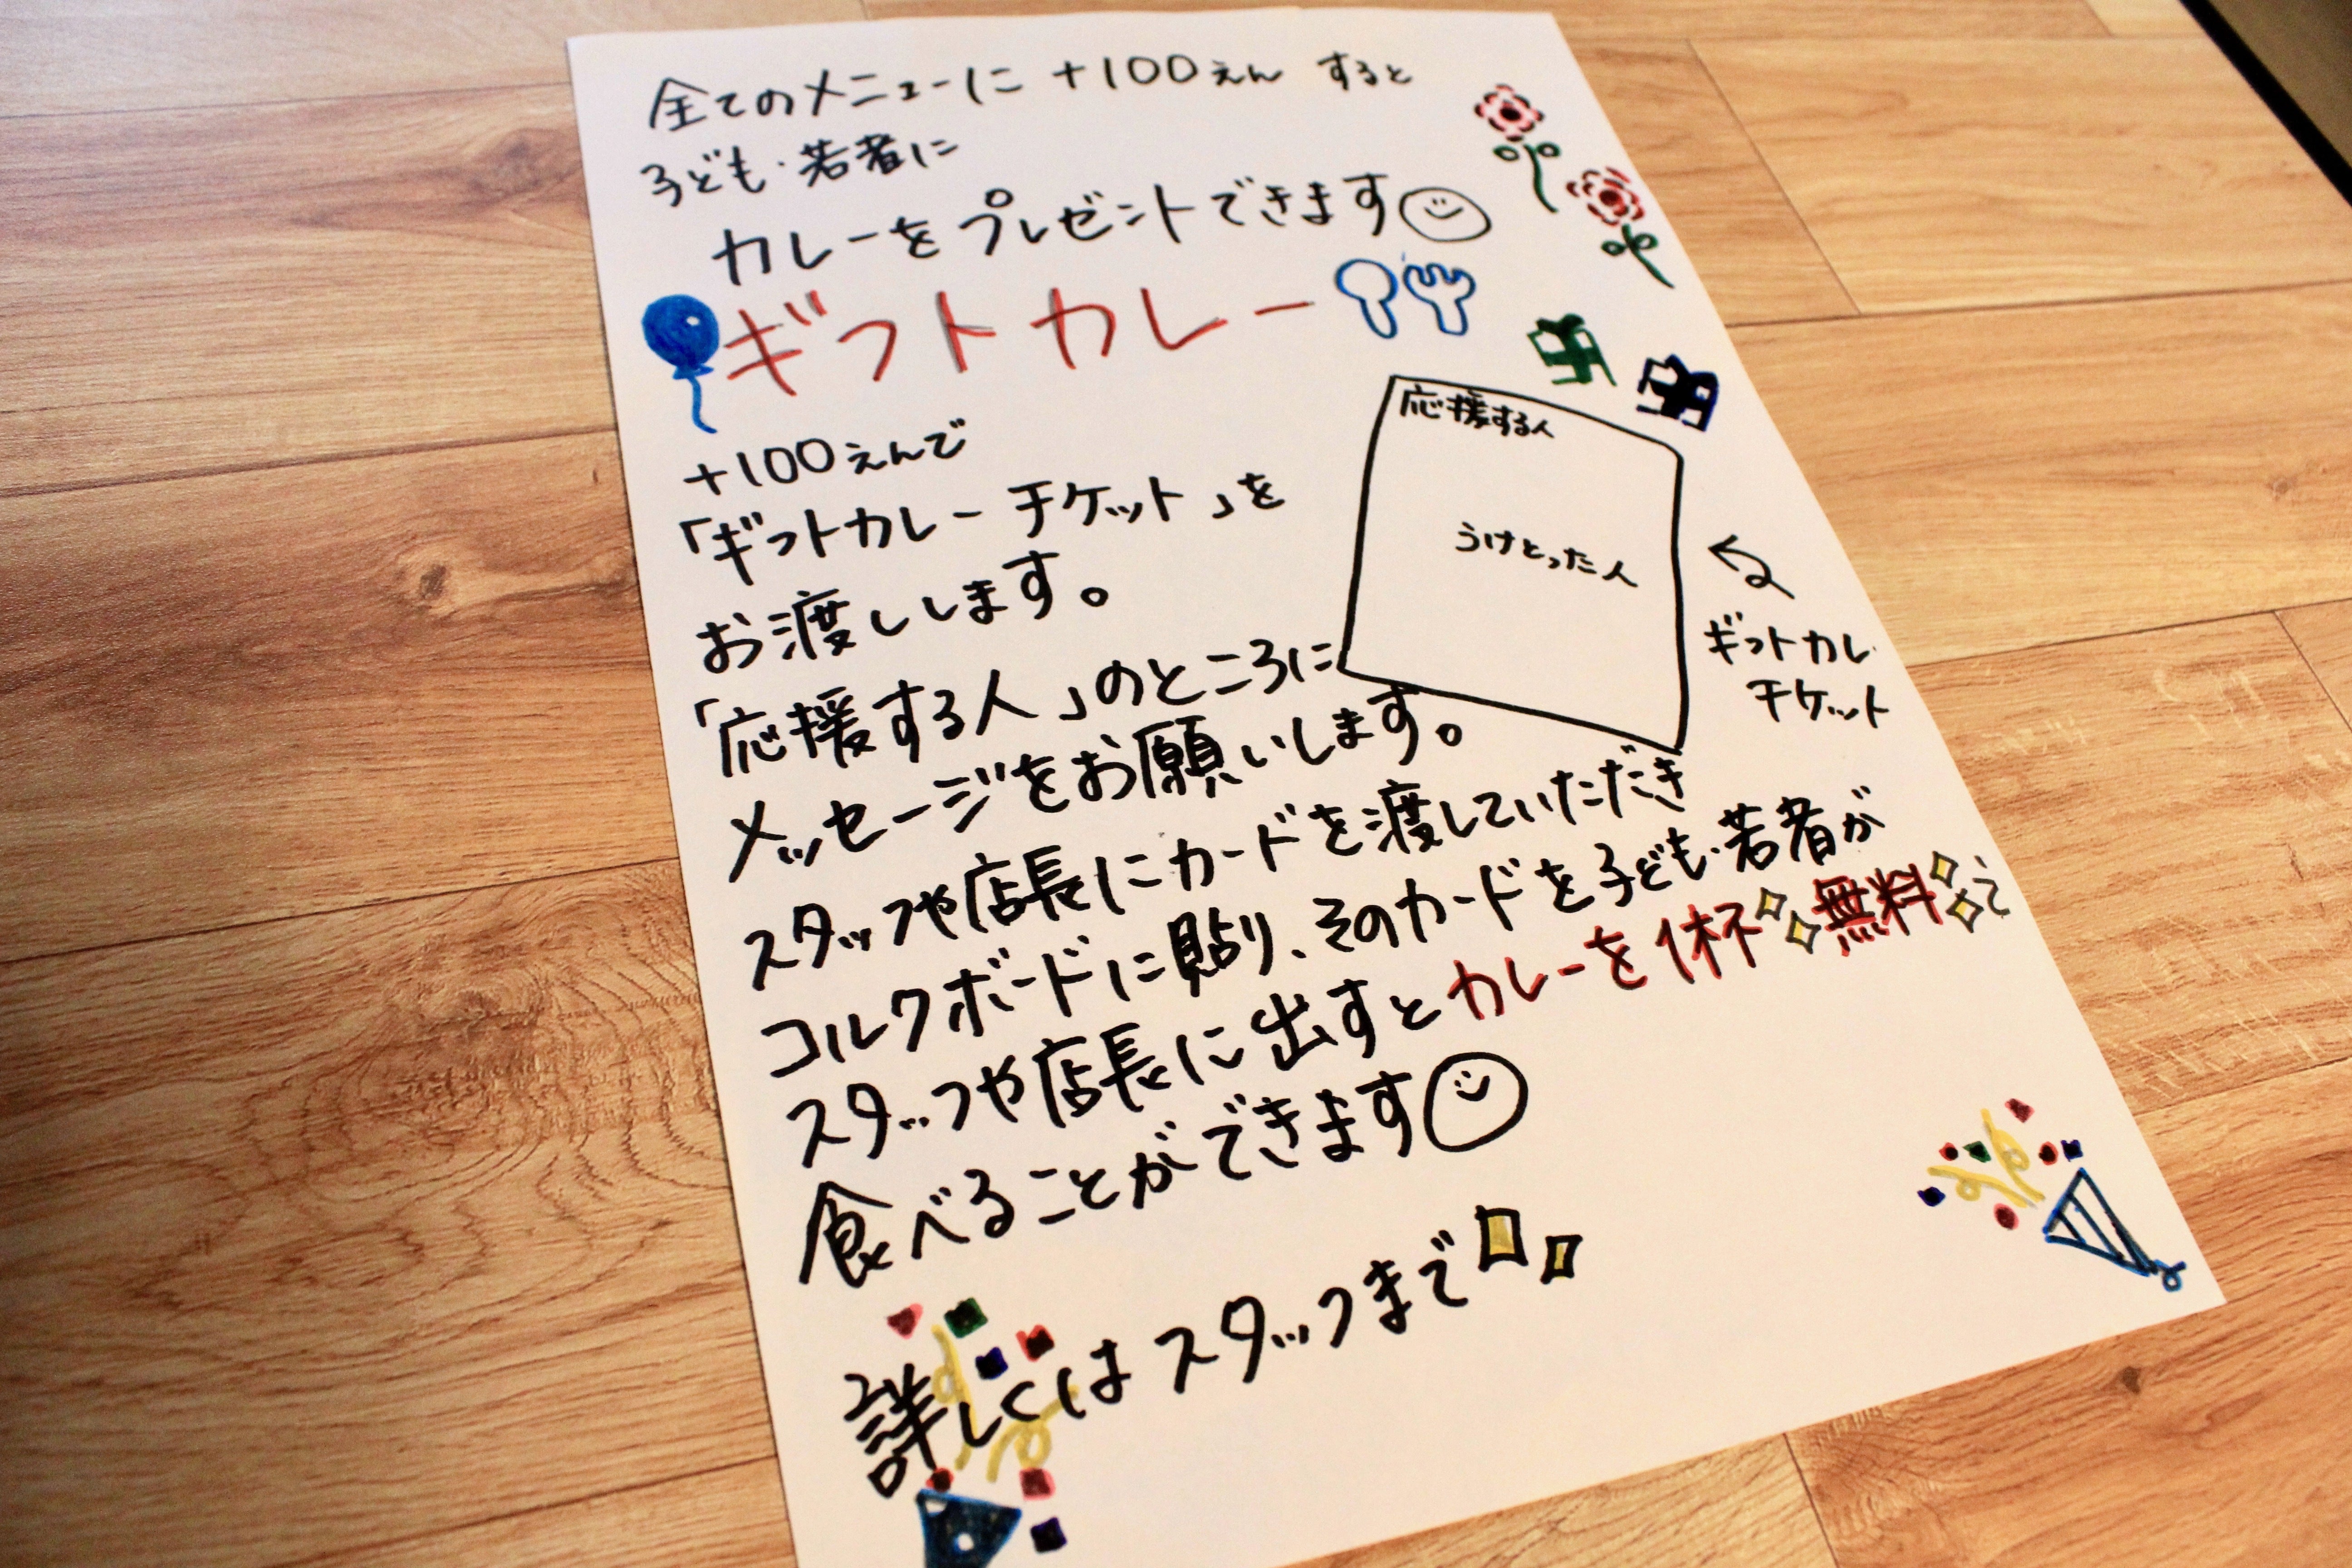 全てのメニューに +100えん すると
子ども・若者に
カレーをプレゼントできます
ギフトカレー
+100えんで
「ギフトカレーチケット」を
お渡しします。
「応援する人」のところに
メッセージをお願いします。
応援する人
うけとった人
ギフトカレ
チケット
スタッフや店長にカードを渡していただき
コルクボードに貼り、そのカードを子ども・若者が
スタッフや店長に出すとカレーを1杯無料で
食べることができます
詳しくはスタッフまで